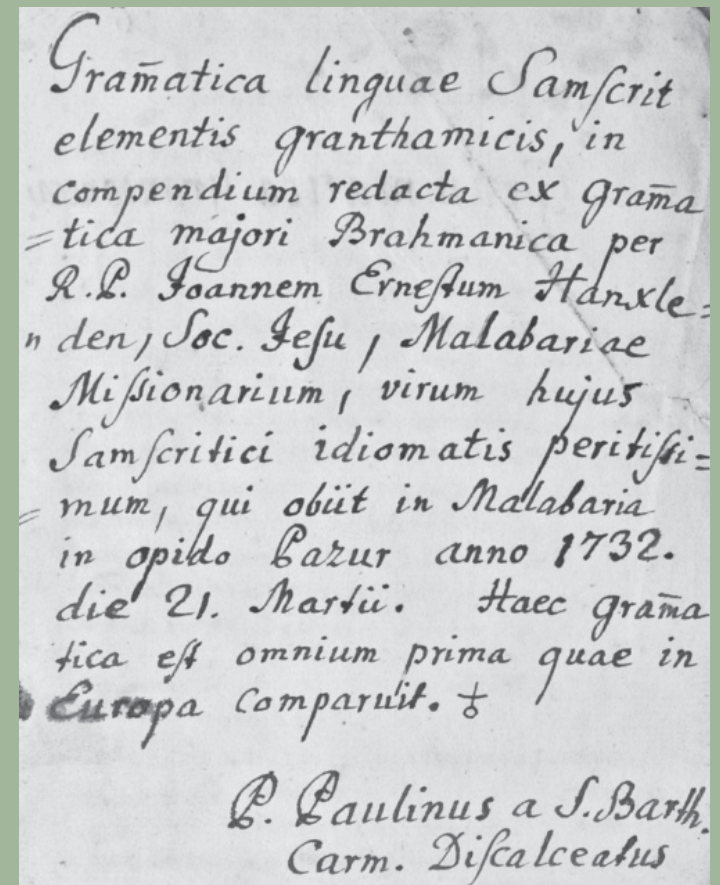 Gram̄atica linguae Samſcrit
elementis granthamicis, in
compendium redacta ex gram̄a
=tica majori Brahmanica per
R.P. Joannem Erneſtum Hanxle=
n den, Soc. Jeſu, Malabariae
Miſsionarium, virum hujus
Samſcritici idiomatis peritiſsi=
=mum, qui obiit in Malabaria
in opido Pazur anno 1732.
die 21. Martii. Haec gram̄a
tica eſt omnium prima quae in
Europa comparuit. ♁
P. Paulinus a S. Barth.
Carm. Diſcalceatus